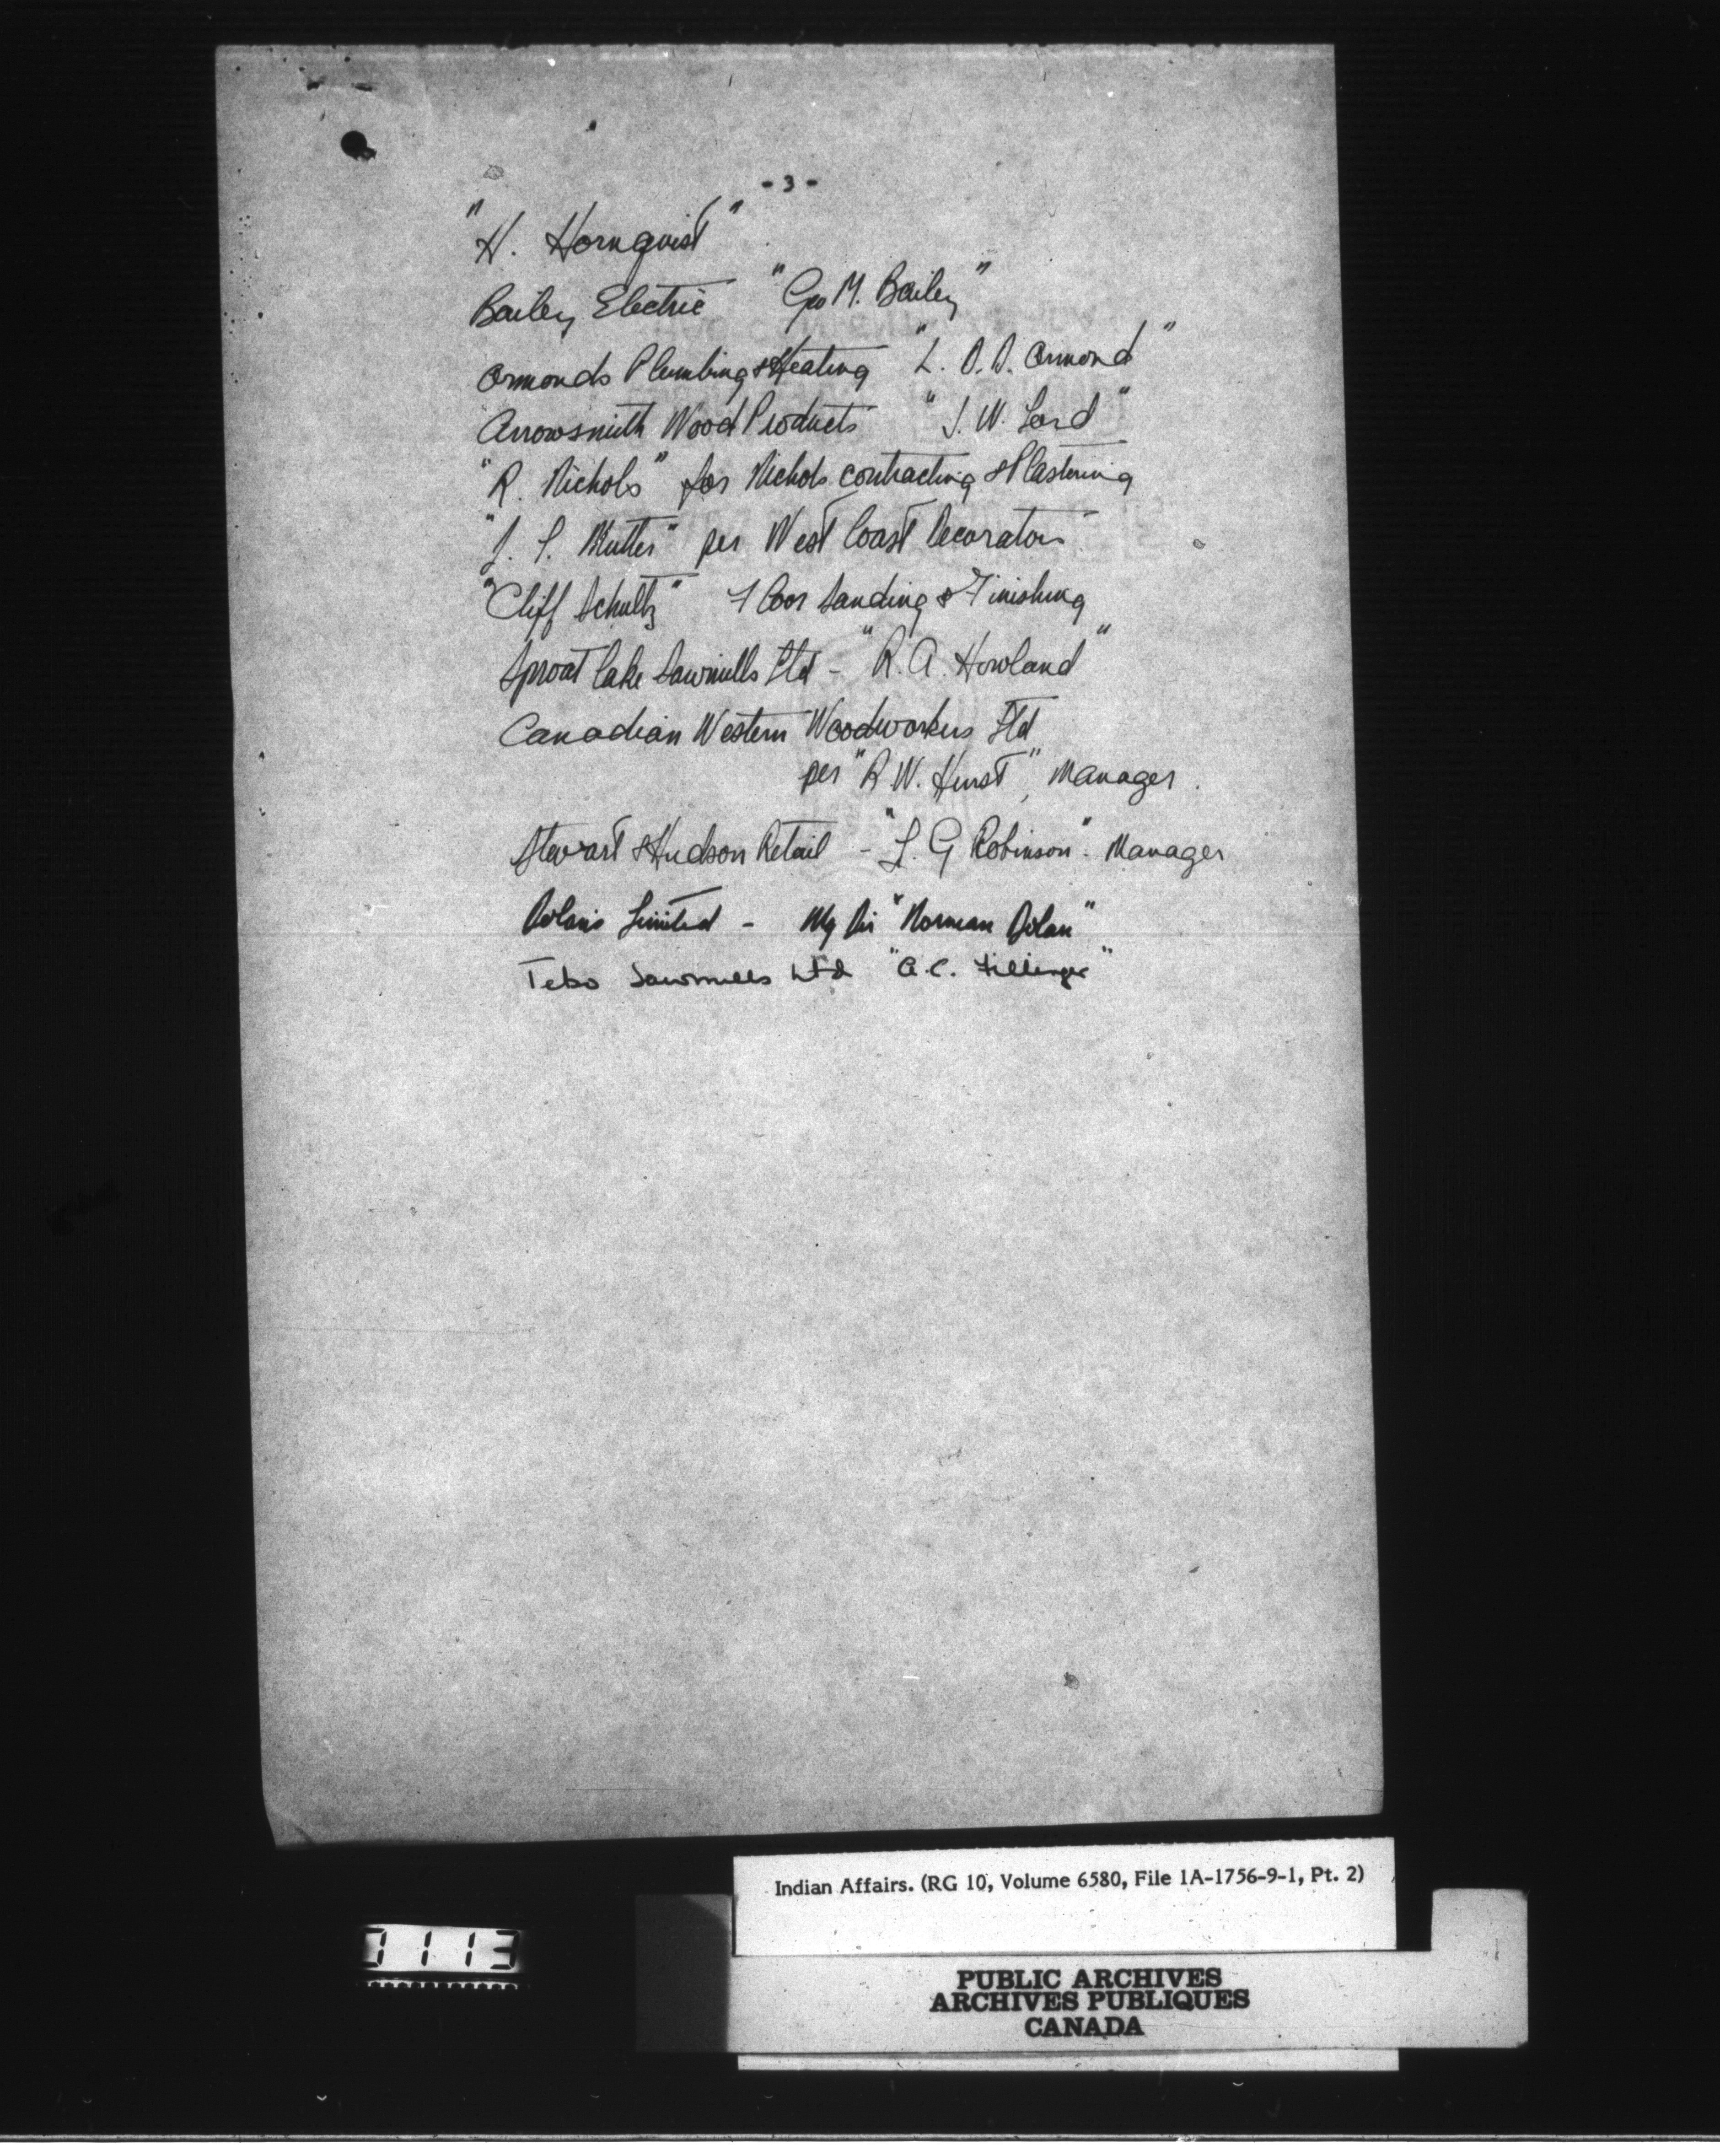 - 3 -
"H. Hornquist"
Bailey Electric "Geo M. Bailey"
Ormonds Plumbing & Heating "L. D. D. Ormond"
Arrowsmith Wood Products "J. W. Lord"
"R. Nichols" for Nichols contracting & Plastering
"J. S. Mutter" per West Coast Decorators
"Cliff Schultz" Floor Sanding & Finishing
Sproat Lake Sawmills Ltd - "R. A. Howland"
Canadian Western Woodworkers Ltd
per "R. W. Hurst", Manager.
Stewart & Hudson Retail - "L. G Robinson". Manager
Dolan's Limited - Mg Dir "Norman Dolan"
Tebo Sawmills Ltd "A. C. Fillinger"
Indian Affairs. (RG 10, Volume 6580, File 1A-1756-9-1, Pt. 2)
1113
PUBLIC ARCHIVES
ARCHIVES PUBLIQUES
CANADA